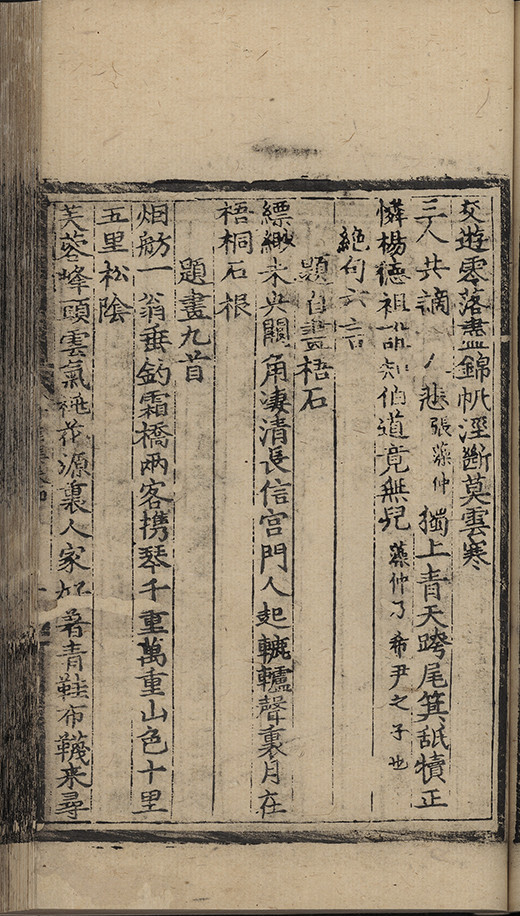 交遊零落盡錦帆涇斷莫雲寒
三人共謫 悲張藻仲獨上青天跨尾箕舐犢正
憐楊德祖詎知伯道竟無兒藻仲乃希尹之子也
絶句六言
題自畫梧石
縹緲未央關角淒清長信宮門人起轆轤聲裏月在
梧桐石根
題畫九首
烟舫一翁垂釣霜橋兩客携琴千重萬重山色十里
五里松陰
芙蓉峰頭雲氣桃花源裏人家 著青鞋布韈来尋